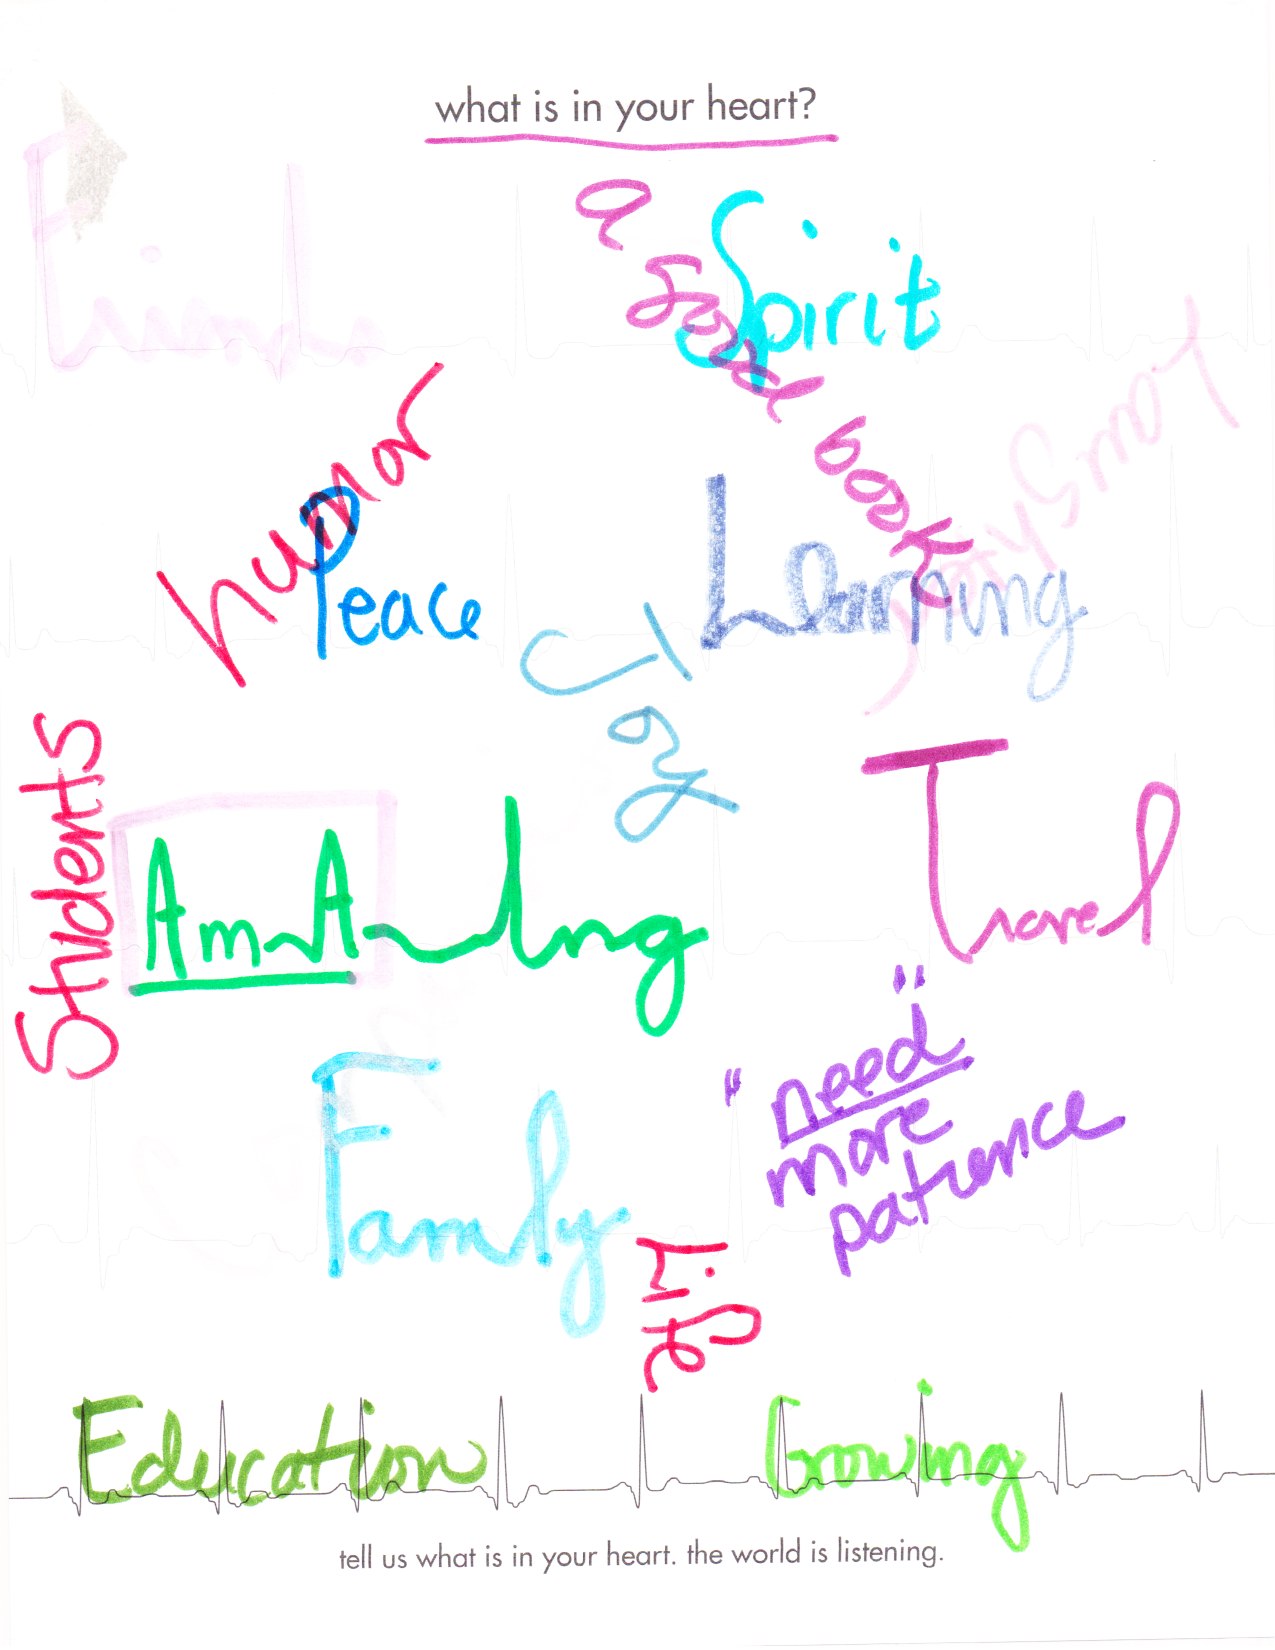 what is in your heart?
Friends
a good book
Spirit
humor
Peace
Learning
Joy
Students
AmAzing
Travel
"need"
more
patience
Family
Life
Education
Growing
tell us what is in your heart. the world is listening.